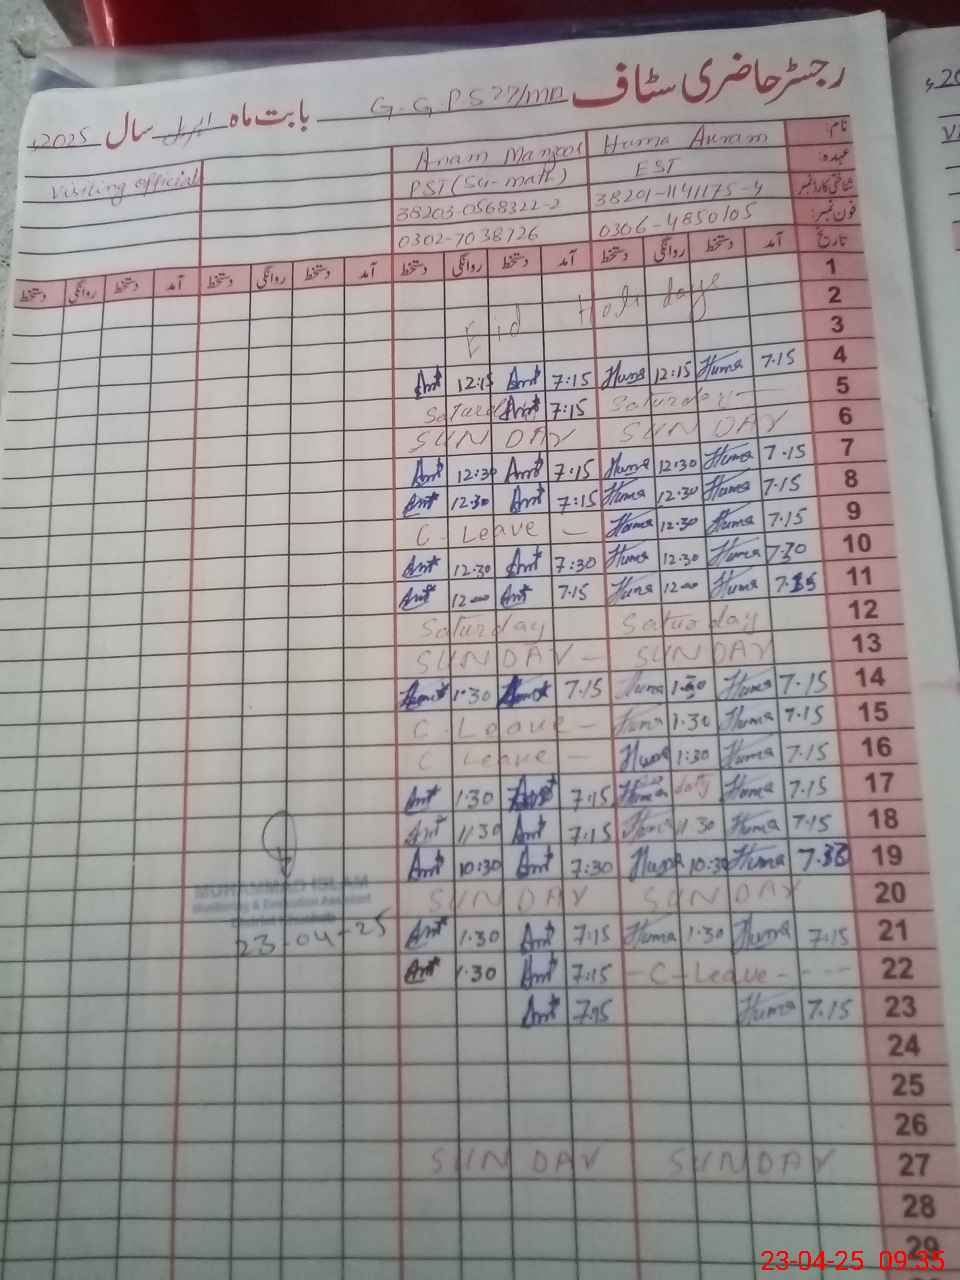 رجسٹر حاضری سٹاف G.G.P.S 27/MB بابت ماہ اپریل سال 2025ء
نام: Huma Akram Anam Manzoor
عہدہ: EST PST (Sci-math) Visiting official
شناختی کارڈ نمبر 38201-1141175-4 38203-0568322-2
فون نمبر: 0306-4850105 0302-7038726
تاریخ آمد دستخط روانگی دستخط آمد دستخط روانگی دستخط آمد دستخط روانگی دستخط آمد دستخط روانگی دستخط
1
2 Eid Holidays
3
4 7.15 Huma 12:15 Huma 7:15 Amt 12:15 Amt
5 Saturday - 7:15 Amt Saturday
6 SUNDAY SUNDAY
7 7.15 Huma 12.30 Huma 7:15 Amt 12:30 Amt
8 7.15 Huma 12.30 Huma 7:15 Amt 12:30 Amt
9 7.15 Huma 12.30 Huma C-Leave -
10 7.30 Huma 12.30 Huma 7:30 Amt 12.30 Amt
11 7.15 Huma 12.00 Huma 7.15 Amt 12.00 Amt
12 Saturday Saturday
13 SUNDAY SUNDAY -
14 7.15 Huma 1.30 Huma 7.15 1.30
15 7.15 Huma 1.30 Huma C-Leave -
16 7.15 Huma 1:30 Huma C Leave -
17 7.15 Huma duty Huma 7:15 Amt 1.30 Amt
18 7.15 Huma 11.30 Huma 7:15 Amt 11.30 Amt
19 7.30 Huma 10:30 Huma 7:30 Amt 10:30 Amt
20 SUNDAY SUNDAY
21 7:15 Huma 1.30 Huma 7:15 Amt 1.30 Amt
22 - C-Leave - - - - 7:15 Amt 1.30 Amt
23 7.15 Huma 7.15 Amt
24
25
26
27 SUNDAY SUNDAY
28
29
MUHAMMAD ISLAM
Monitoring & Evaluation Assistant
District Khushab
23-04-25
23-04-25 09:35